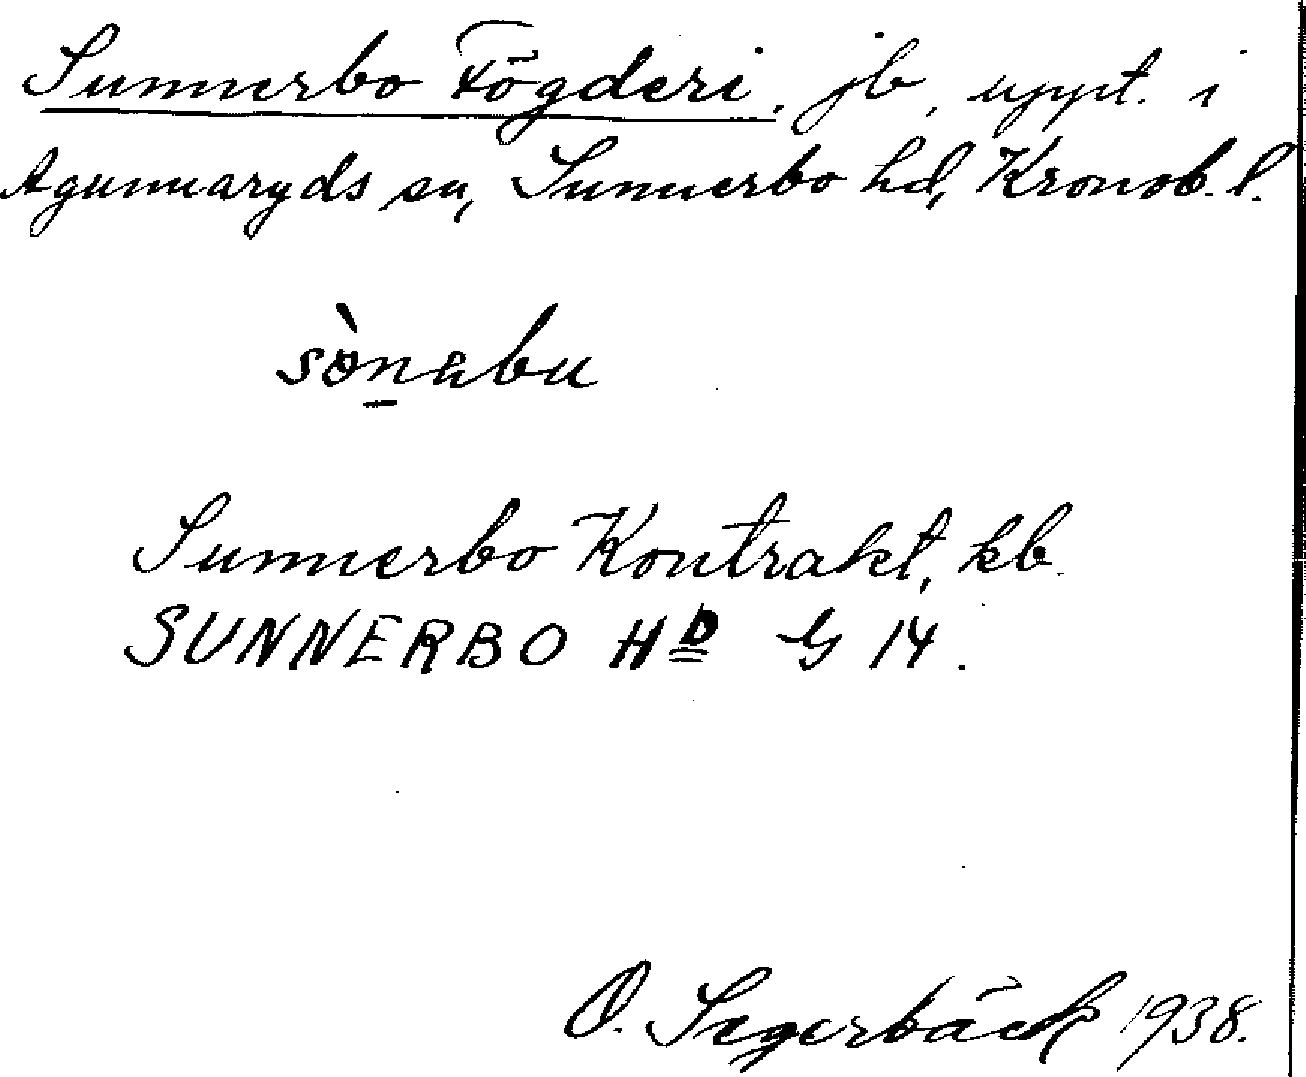 Sunnerbo Fögderi, jb, uppt. i
Agunnaryds sn, Sunnerbo hd, Kronob. l.
Sunnerbo Kontrakt, kb.
SUNNERBO HD G 14.
O. Segerbäck 1938.